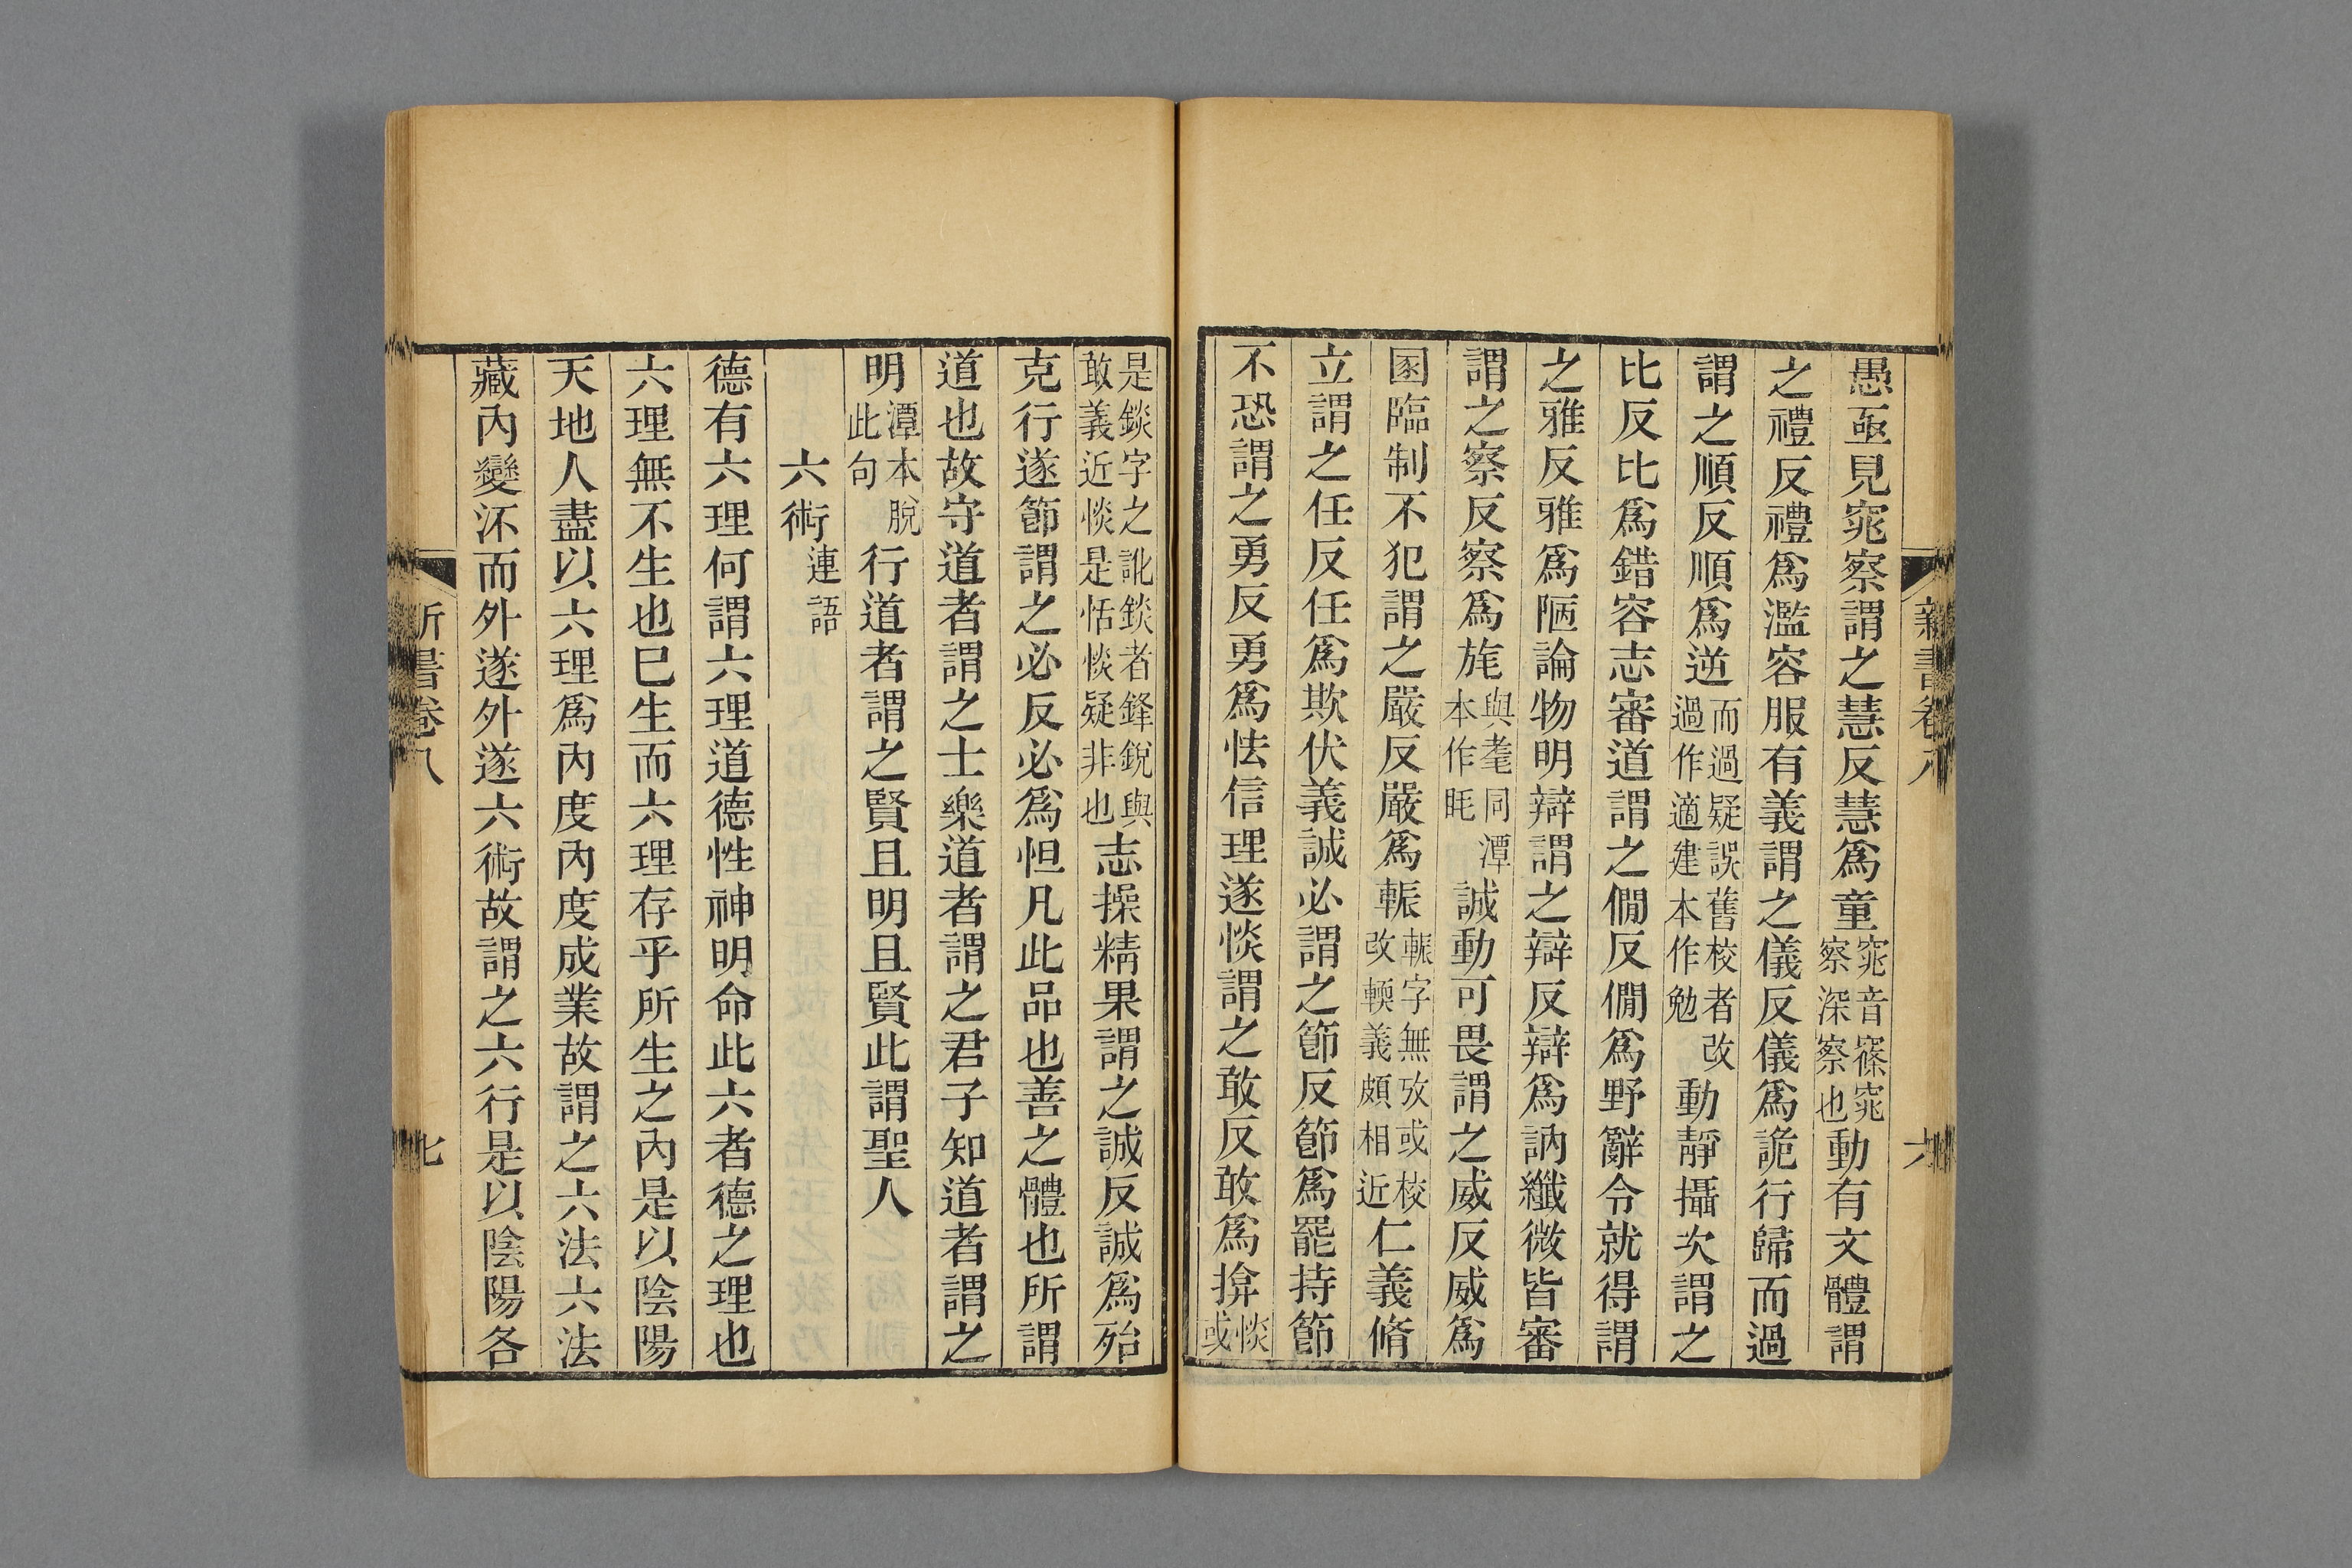 愚亟見窕察謂之慧反慧爲童窕音篠窕察深察也動有文體謂
之禮反禮爲濫容服有義謂之儀反儀爲詭行歸而過
謂之順反順爲逆而過疑誤舊校者改過作適建本作勉動靜攝次謂之
比反比爲錯容志審道謂之僩反僩爲野辭令就得謂
之雅反雅爲陋論物明辯謂之辯反辯爲訥纖微皆審
謂之察反察爲旄與耄同潭本作眊誠動可畏謂之威反威爲
圂臨制不犯謂之嚴反嚴爲䡅䡅字無攷或校改輭義頗相近仁義脩
立謂之任反任爲欺伏義誠必謂之節反節爲罷持節
不恐謂之勇反勇爲怯信理遂惔謂之敢反敢爲揜惔或
新書卷八
六
是錟字之訛錟者鋒銳與敢義近惔是恬惔疑非也志操精果謂之誠反誠爲殆
克行遂節謂之必反必爲怛凡此品也善之體也所謂
道也故守道者謂之士樂道者謂之君子知道者謂之
明潭本脫此句行道者謂之賢且明且賢此謂聖人
六術連語
德有六理何謂六理道德性神明命此六者德之理也
六理無不生也已生而六理存乎所生之內是以陰陽
天地人盡以六理爲內度內度成業故謂之六法六法
藏內變泝而外遂外遂六術故謂之六行是以陰陽各
新書卷八
七